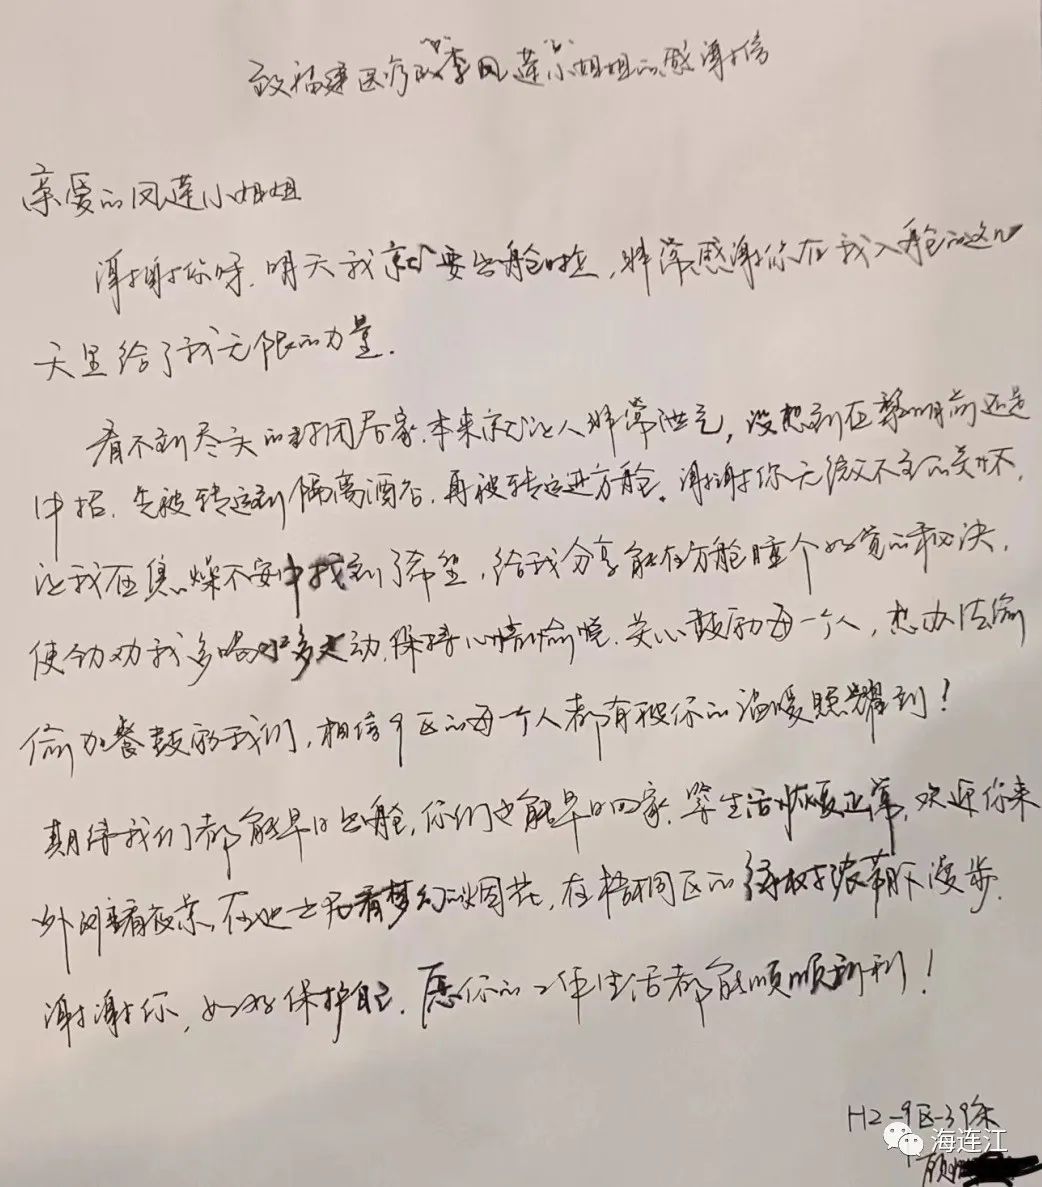 致福建医疗队李凤莲小姐姐的感谢信
亲爱的凤莲小姐姐
谢谢你呀.明天我就要出舱啦,非常感谢你在我入舱的这几
天里给了我无限的力量.
看不到尽头的封闭居家.本来就让人非常泄气,没想到在黎明前还是
中招.先被转运到隔离酒店.再被转运进方舱。谢谢你无微不至的关怀,
让我在焦燥不安中找到了希望,给我分享能在方舱睡个好觉的秘决.
使劲劝我多喝水多运动.保持心情愉悦.关心鼓励每一个人,想办法偷
偷加餐鼓励我们,相信9区的每一个人都有被你的温暖照耀到!
期待我们都能早日出舱,你们也能早日回家.等生活恢复正常,欢迎你来
外滩看夜景,在迪士尼看梦幻的烟花,在梧桐区的绿树浓荫下漫步.
谢谢你,好好保护自己.愿你的工作生活都能顺顺利利!
H2-9区-39床
顾
海连江